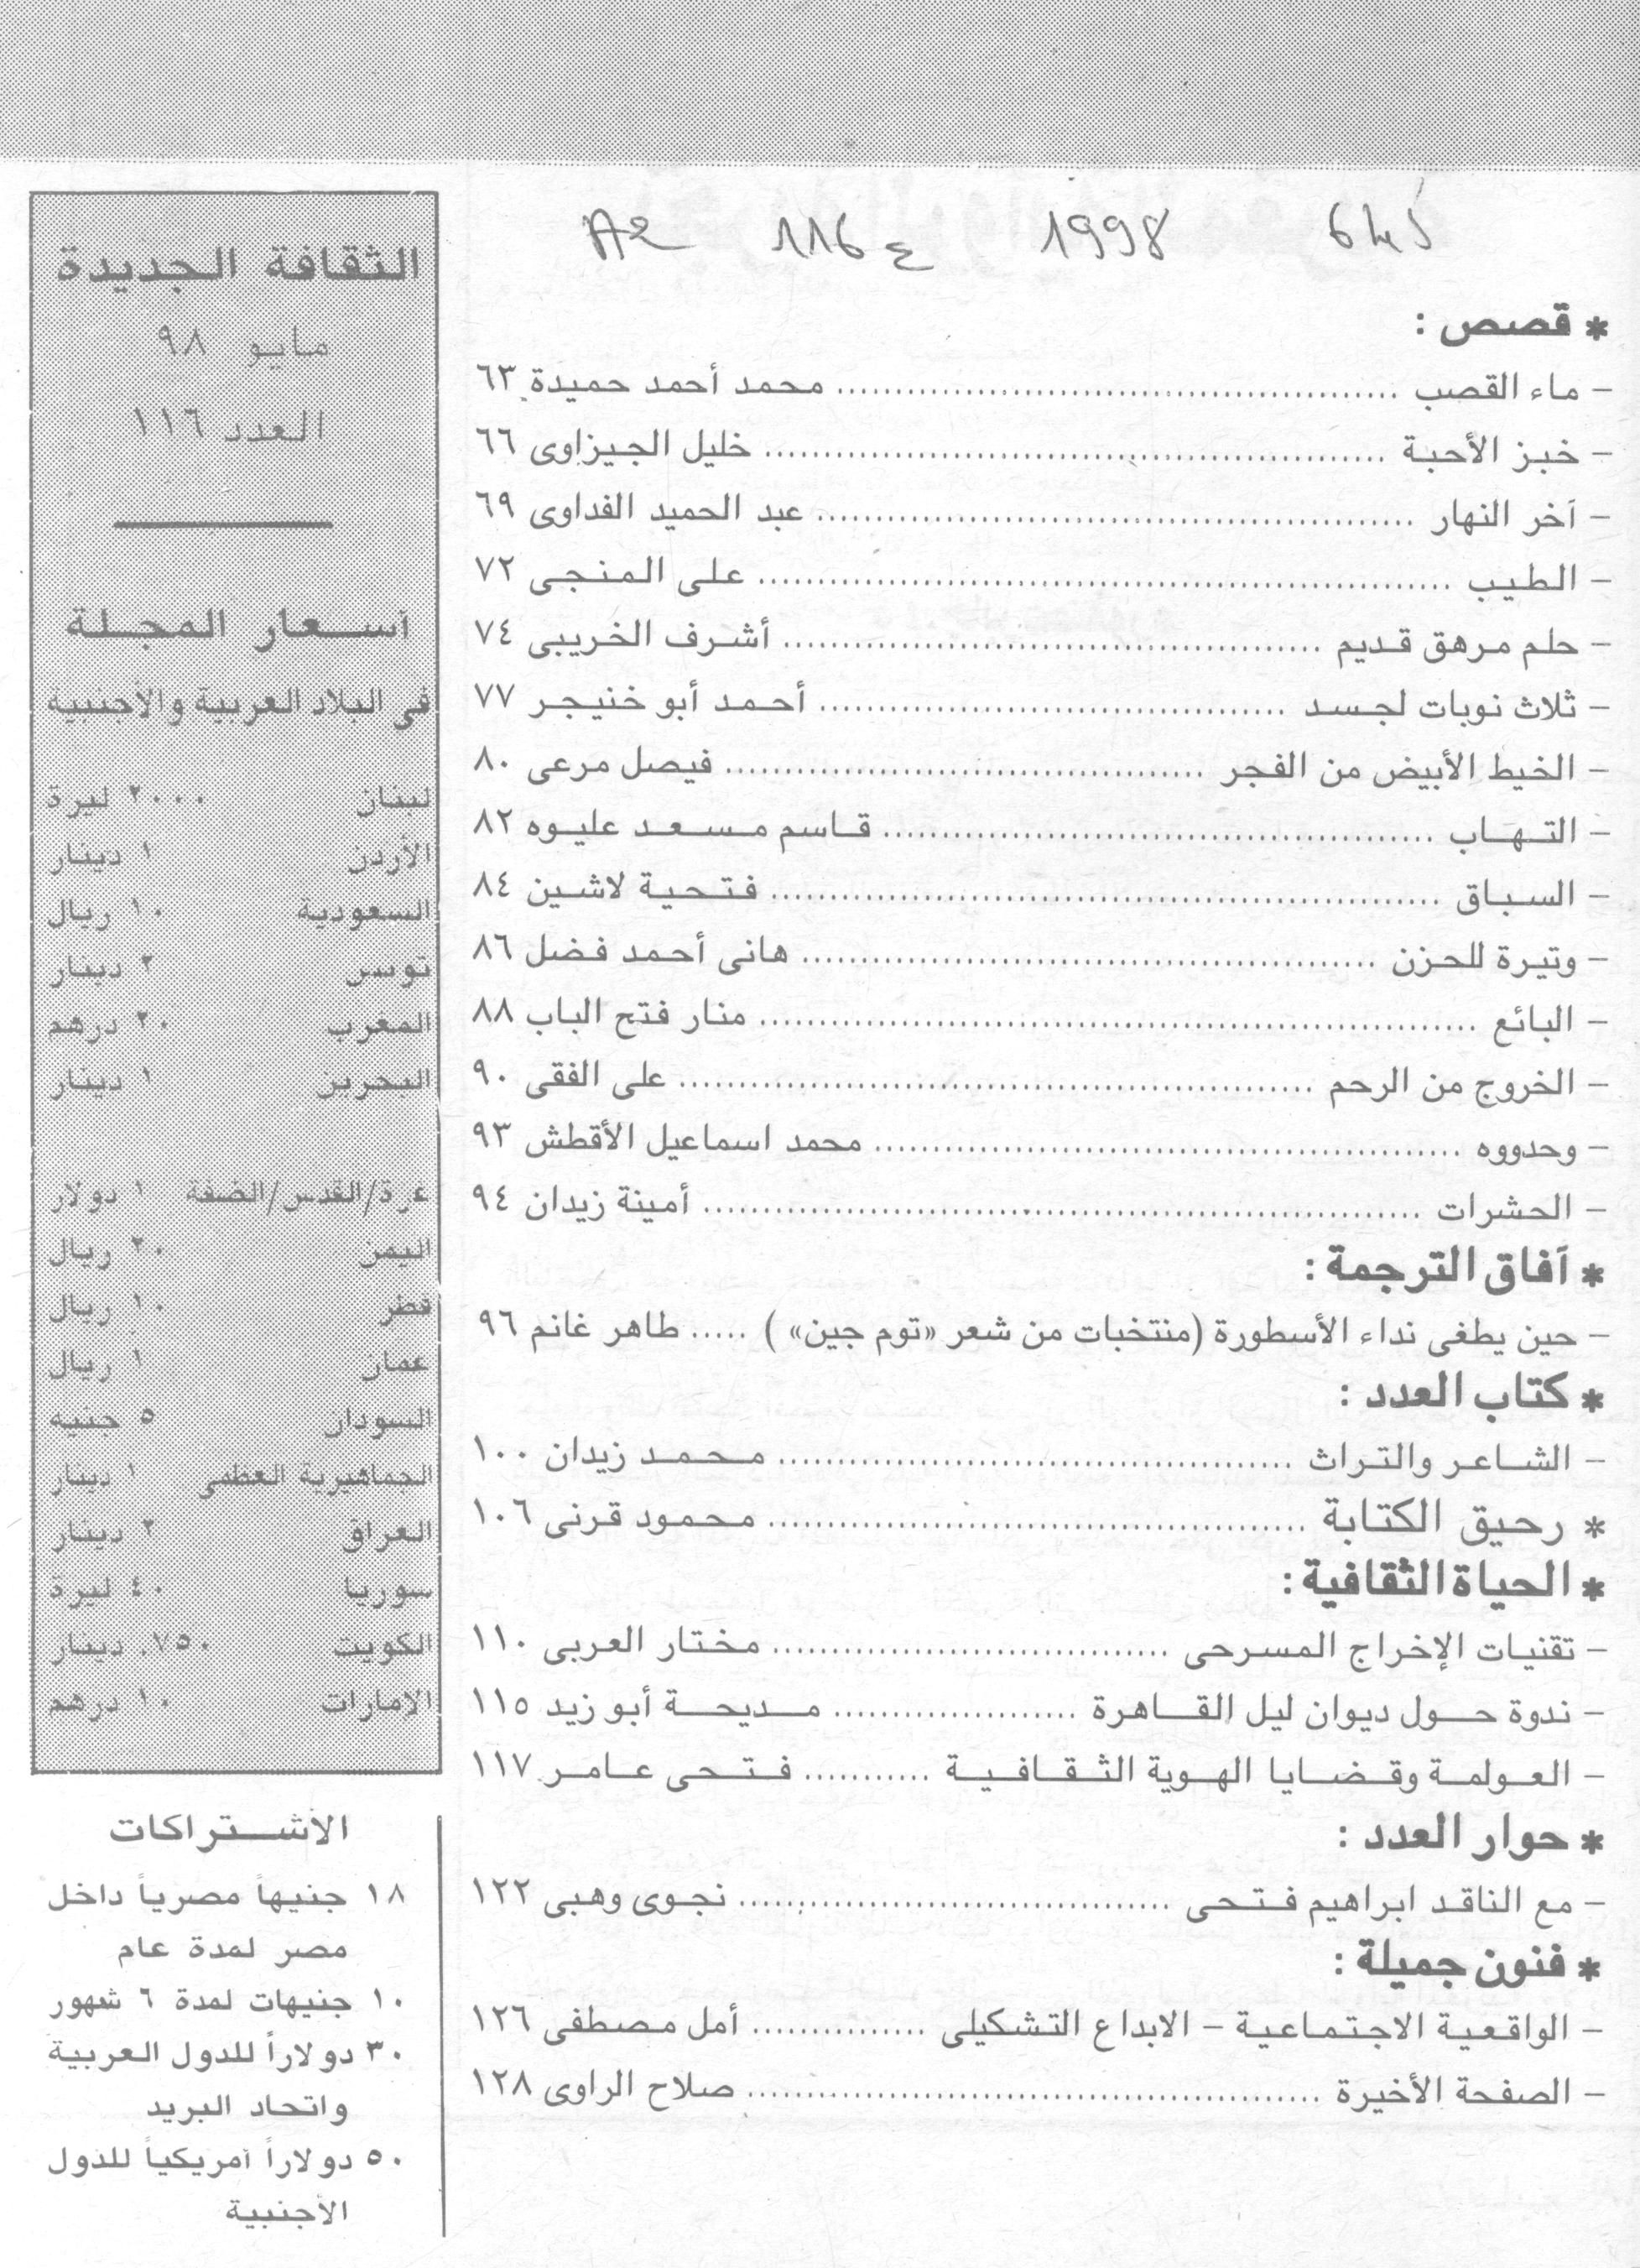 1998
* قصص :
- ماء القصب .......... محمد أحمد حميدة ٦٣
- خبز الأحبة .......... خليل الجيزاوى ٦٦
- آخر النهار .......... عبد الحميد الفداوى ٦٩
- الطيب .......... على المنجى ٧٢
- حلم مرهق قديم .......... أشرف الخريبى ٧٤
- ثلاث نوبات لجسد .......... أحمد أبو خنيجر ٧٧
- الخيط الأبيض من الفجر .......... فيصل مرعى ٨٠
- التهاب .......... قاسم مسعد عليوه ٨٢
- السباق .......... فتحية لاشين ٨٤
- وتيرة للحزن .......... هانى أحمد فضل ٨٦
- البائع .......... منار فتح الباب ٨٨
- الخروج من الرحم .......... على الفقى ٩٠
- وحدووه .......... محمد اسماعيل الأقطش ٩٣
- الحشرات .......... أمينة زيدان ٩٤
* آفاق الترجمة :
- حين يطغى نداء الأسطورة (منتخبات من شعر «توم جين» ) ..... طاهر غانم ٩٦
* كتاب العدد :
- الشاعر والتراث .......... محمد زيدان ١٠٠
* رحيق الكتابة .......... محمود قرنى ١٠٦
* الحياة الثقافية :
- تقنيات الإخراج المسرحى .......... مختار العربى ١١٠
- ندوة حول ديوان ليل القاهرة .......... مديحة أبو زيد ١١٥
- العولمة وقضايا الهوية الثقافية .......... فتحى عامر ١١٧
* حوار العدد :
- مع الناقد ابراهيم فتحى .......... نجوى وهبى ١٢٢
* فنون جميلة :
- الواقعية الاجتماعية - الابداع التشكيلى .......... أمل مصطفى ١٢٦
- الصفحة الأخيرة .......... صلاح الراوى ١٢٨
الثقافة الجديدة
مايو ٩٨
العدد ١١٦
أسعار المجلة
فى البلاد العربية والأجنبية
لبنان ٢٠٠٠ ليرة
الأردن ١ دينار
السعودية ١٠ ريال
تونس ٢ دينار
المغرب ٢٠ درهم
البحرين ١ دينار
غزة/القدس/الضفة ١ دولار
اليمن ٢٠ ريال
قطر ١٠ ريال
عمان ١ ريال
السودان ٥ جنيه
الجماهيرية العظمى ١ دينار
العراق ٢ دينار
سوريا ٤٠ ليرة
الكويت ٧٥٠. دينار
الامارات ١٠ درهم
الأشتراكات
١٨ جنيهاً مصرياً داخل
مصر لمدة عام
١٠ جنيهات لمدة ٦ شهور
٣٠ دولاراً للدول العربية
واتحاد البريد
٥٠ دولاراً أمريكياً للدول
الأجنبية